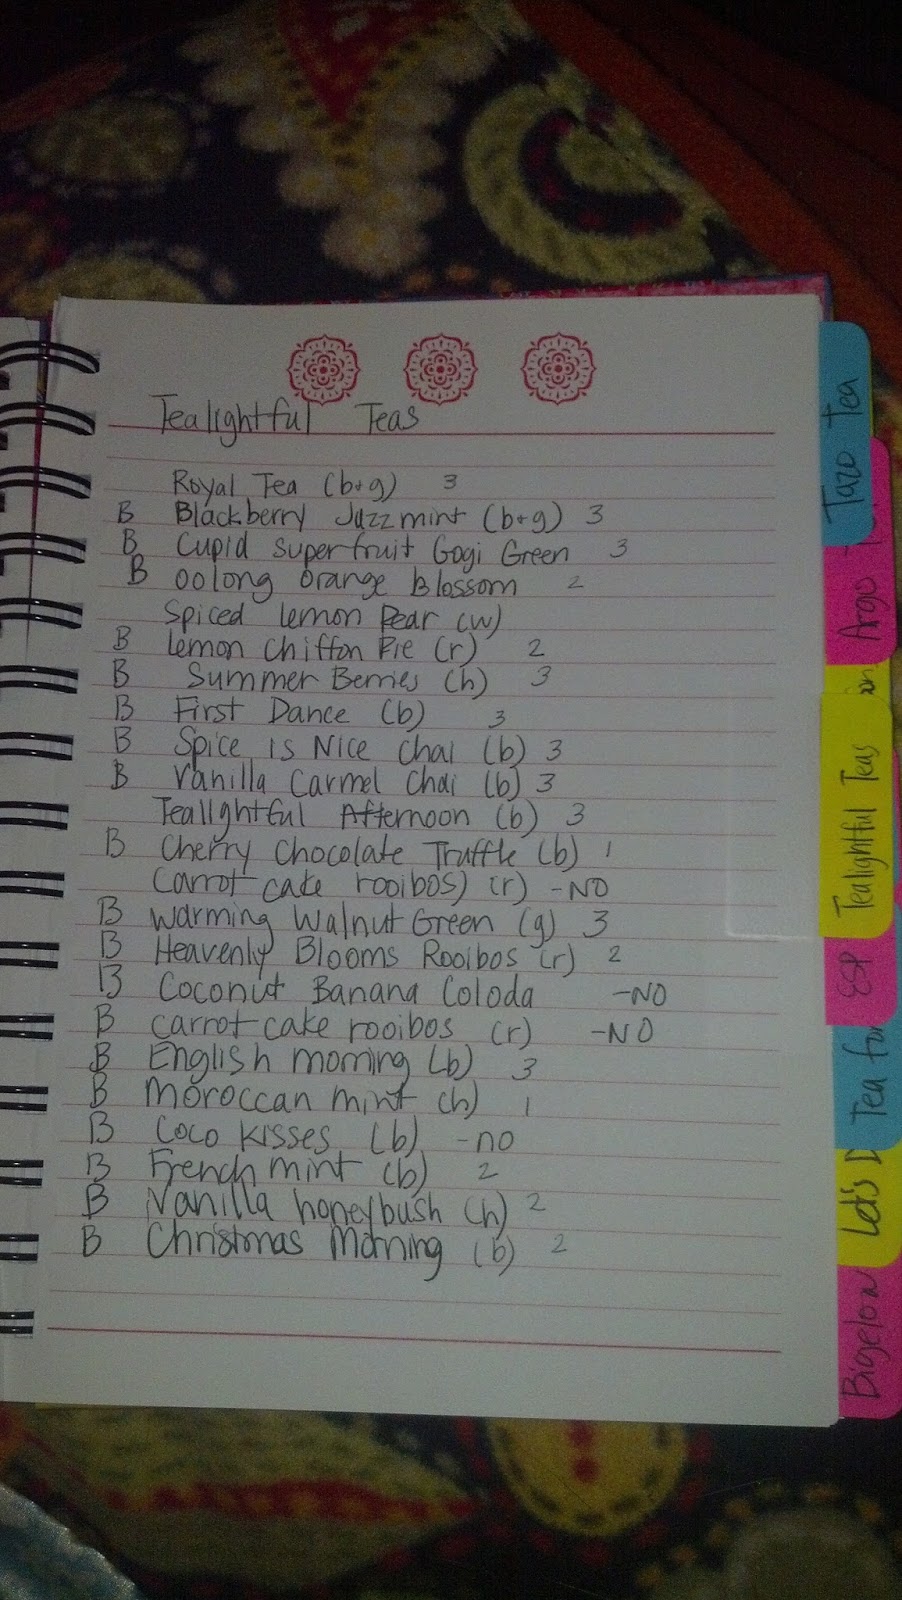 Tealightful Teas
Royal Tea (b+g) 3
B Blackberry Jazzmint (b+g) 3
B Cupid Superfruit Gogi Green 3
B Oolong Orange Blossom 2
Spiced Lemon Pear (w)
B Lemon Chiffon Pie (r) 2
B Summer Berries (h) 3
B First Dance (b) 3
B Spice is Nice Chai (b) 3
B Vanilla Carmel Chai (b) 3
Teallghtful Afternoon (b) 3
B Cherry Chocolate Truffle (b) 1
Carrot cake rooibos) (r) -NO
B Warming Walnut Green (g) 3
B Heavenly Blooms Rooibos (r) 2
B Coconut Banana Coloda -NO
B carrot cake rooibos (r) -NO
B English morning (b) 3
B moroccan mint (h) 1
B Coco Kisses (b) -no
B French mint (b) 2
B Vanilla honeybush (h) 2
B Christmas Morning (b) 2
Tazo Tea
Argo
Tealightful Teas
ESP
Tea for
Let's D
Bigelow